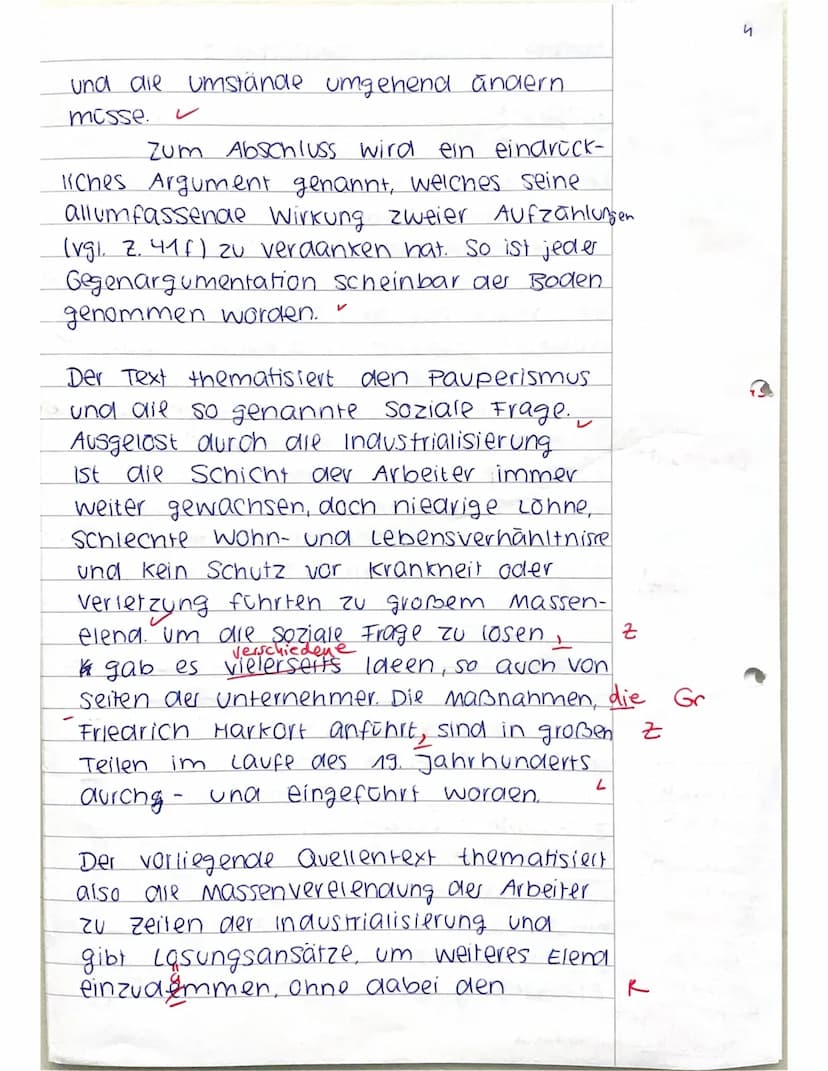 4
und die Umstände umgehend ändern
müsse. ✓
Zum Abschluss wird ein eindrück-
liches Argument genannt, welches seine
allumfassende Wirkung zweier Aufzählungen
(vgl. Z. 41f) zu verdanken hat. So ist jeder
Gegenargumentation scheinbar der Boden
genommen worden. ✓
Der Text thematisiert den Pauperismus
und die so genannte Soziale Frage. ✓
Ausgelöst durch die Industrialisierung
ist die Schicht der Arbeiter immer
weiter gewachsen, doch niedrige Löhne,
schlechte Wohn- und Lebensverhähltnisse
und kein Schutz vor Krankheit oder
Verletzung führten zu großem Massen-
elend. ✓ Um die soziale Frage zu lösen, Z
verschiedene
gab es vielerseits Ideen, so auch von
Seiten der Unternehmer. Die Maßnahmen, die Gr
Friedrich Harkort anführt, sind in großen Z
Teilen im Laufe des 19. Jahrhunderts
durchg- und eingeführt worden.
Der vorliegende Quellentext thematisiert
also die Massenverelendung der Arbeiter
zu Zeiten der Industrialisierung und
gibt Lösungsansätze, um weiteres Elend
einzudämmen, ohne dabei den R